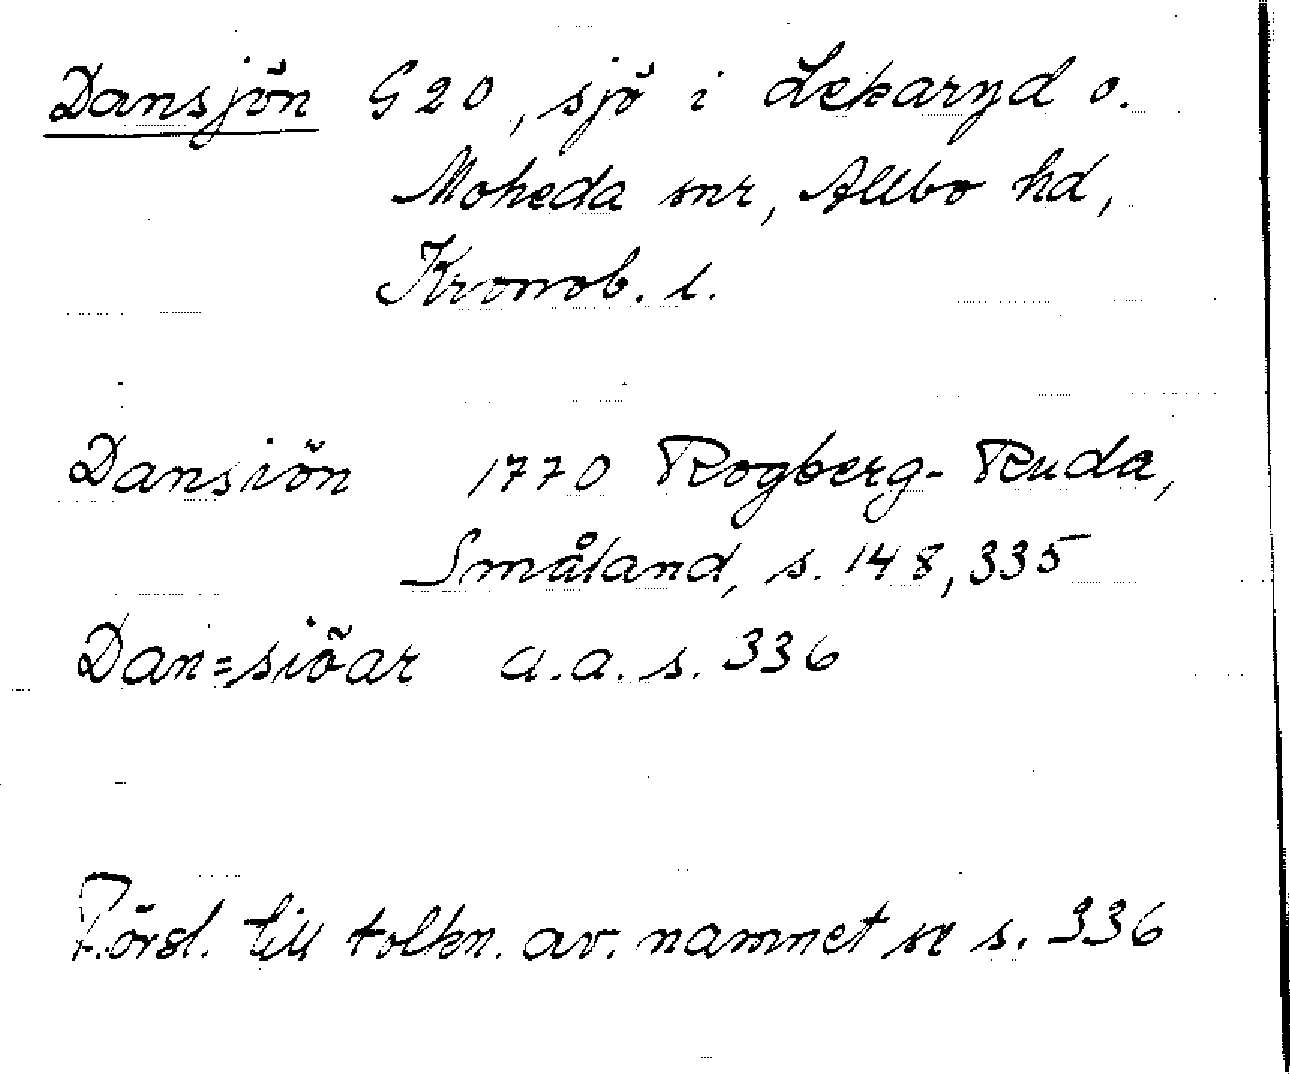 Dansjön G20, sjö i Lekaryd o.
Moheda snr, Allbo hd,
Kronob. l.
Dansiön 1770 Rogberg-Ruda,
Småland, s. 148, 335
Dan=siöar a.a. s. 336
Försl. till tolkn. av. namnet se s. 336